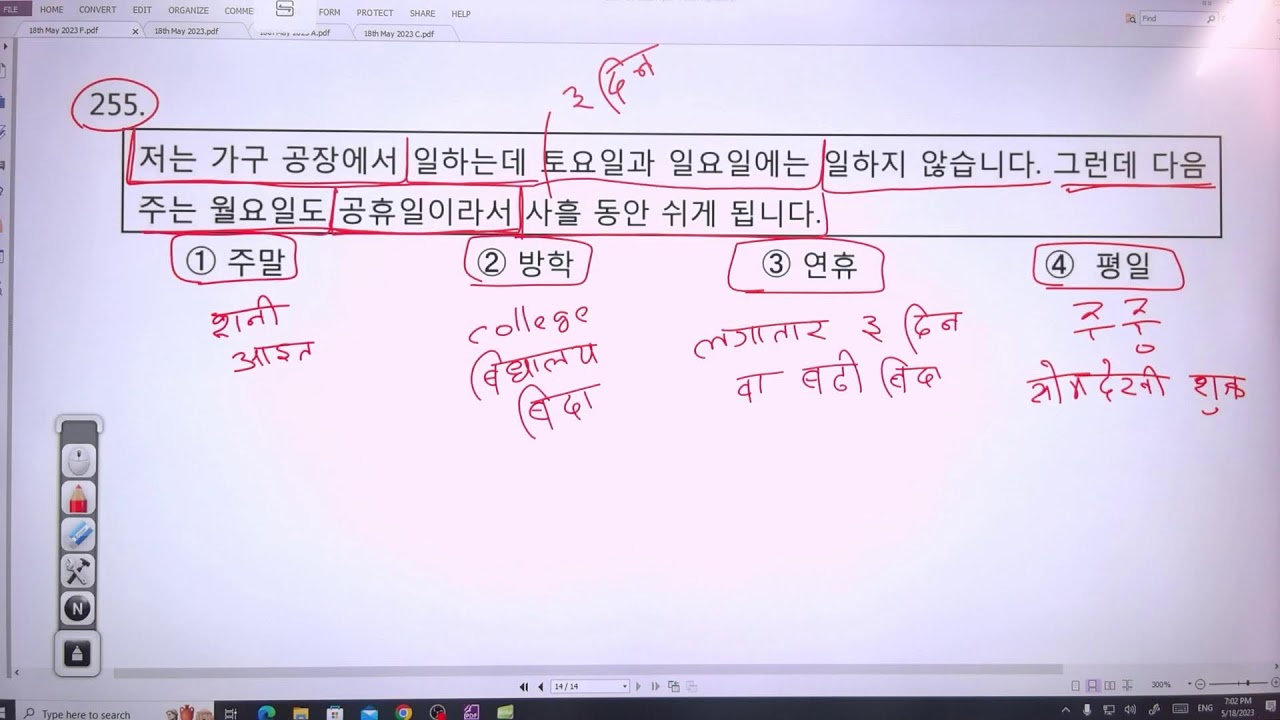 FILE HOME CONVERT EDIT ORGANIZE COMME FORM PROTECT SHARE HELP
Find
18th May 2023 F.pdf 18th May 2023.pdf A.pdf 18th May 2023 C.pdf
३ दिन
255.
저는 가구 공장에서 일하는데 토요일과 일요일에는 일하지 않습니다. 그런데 다음
주는 월요일도 공휴일이라서 사흘 동안 쉬게 됩니다.
① 주말 ② 방학 ③ 연휴 ④ 평일
शनी college लगातार ३ दिन
आइत बिद्यालय वा बढी बिदा सोमदेखी शुक्र
बिदा
N
14 / 14
300%
Type here to search
ENG
7:02 PM
5/18/2023